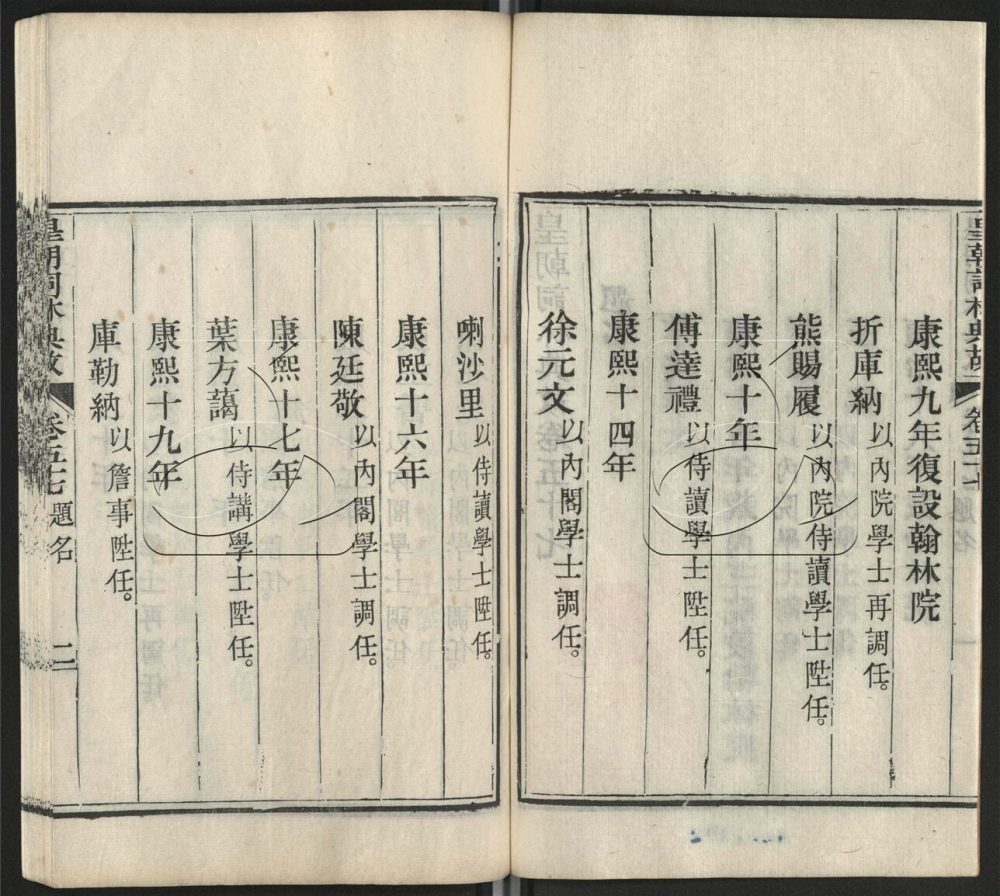 皇朝詞林典故 卷五十七 題名 一
康熙九年復設翰林院
折庫納 以內院學士再調任。
熊賜履 以內院侍讀學士陞任。
康熙十年
傅達禮 以侍讀學士陞任。
康熙十四年
徐元文 以內閣學士調任。
喇沙里 以侍讀學士陞任。
康熙十六年
陳廷敬 以內閣學士調任。
康熙十七年
葉方藹 以侍講學士陞任。
康熙十九年
庫勒納 以詹事陞任。
皇朝詞林典故 卷五十七 題名 二